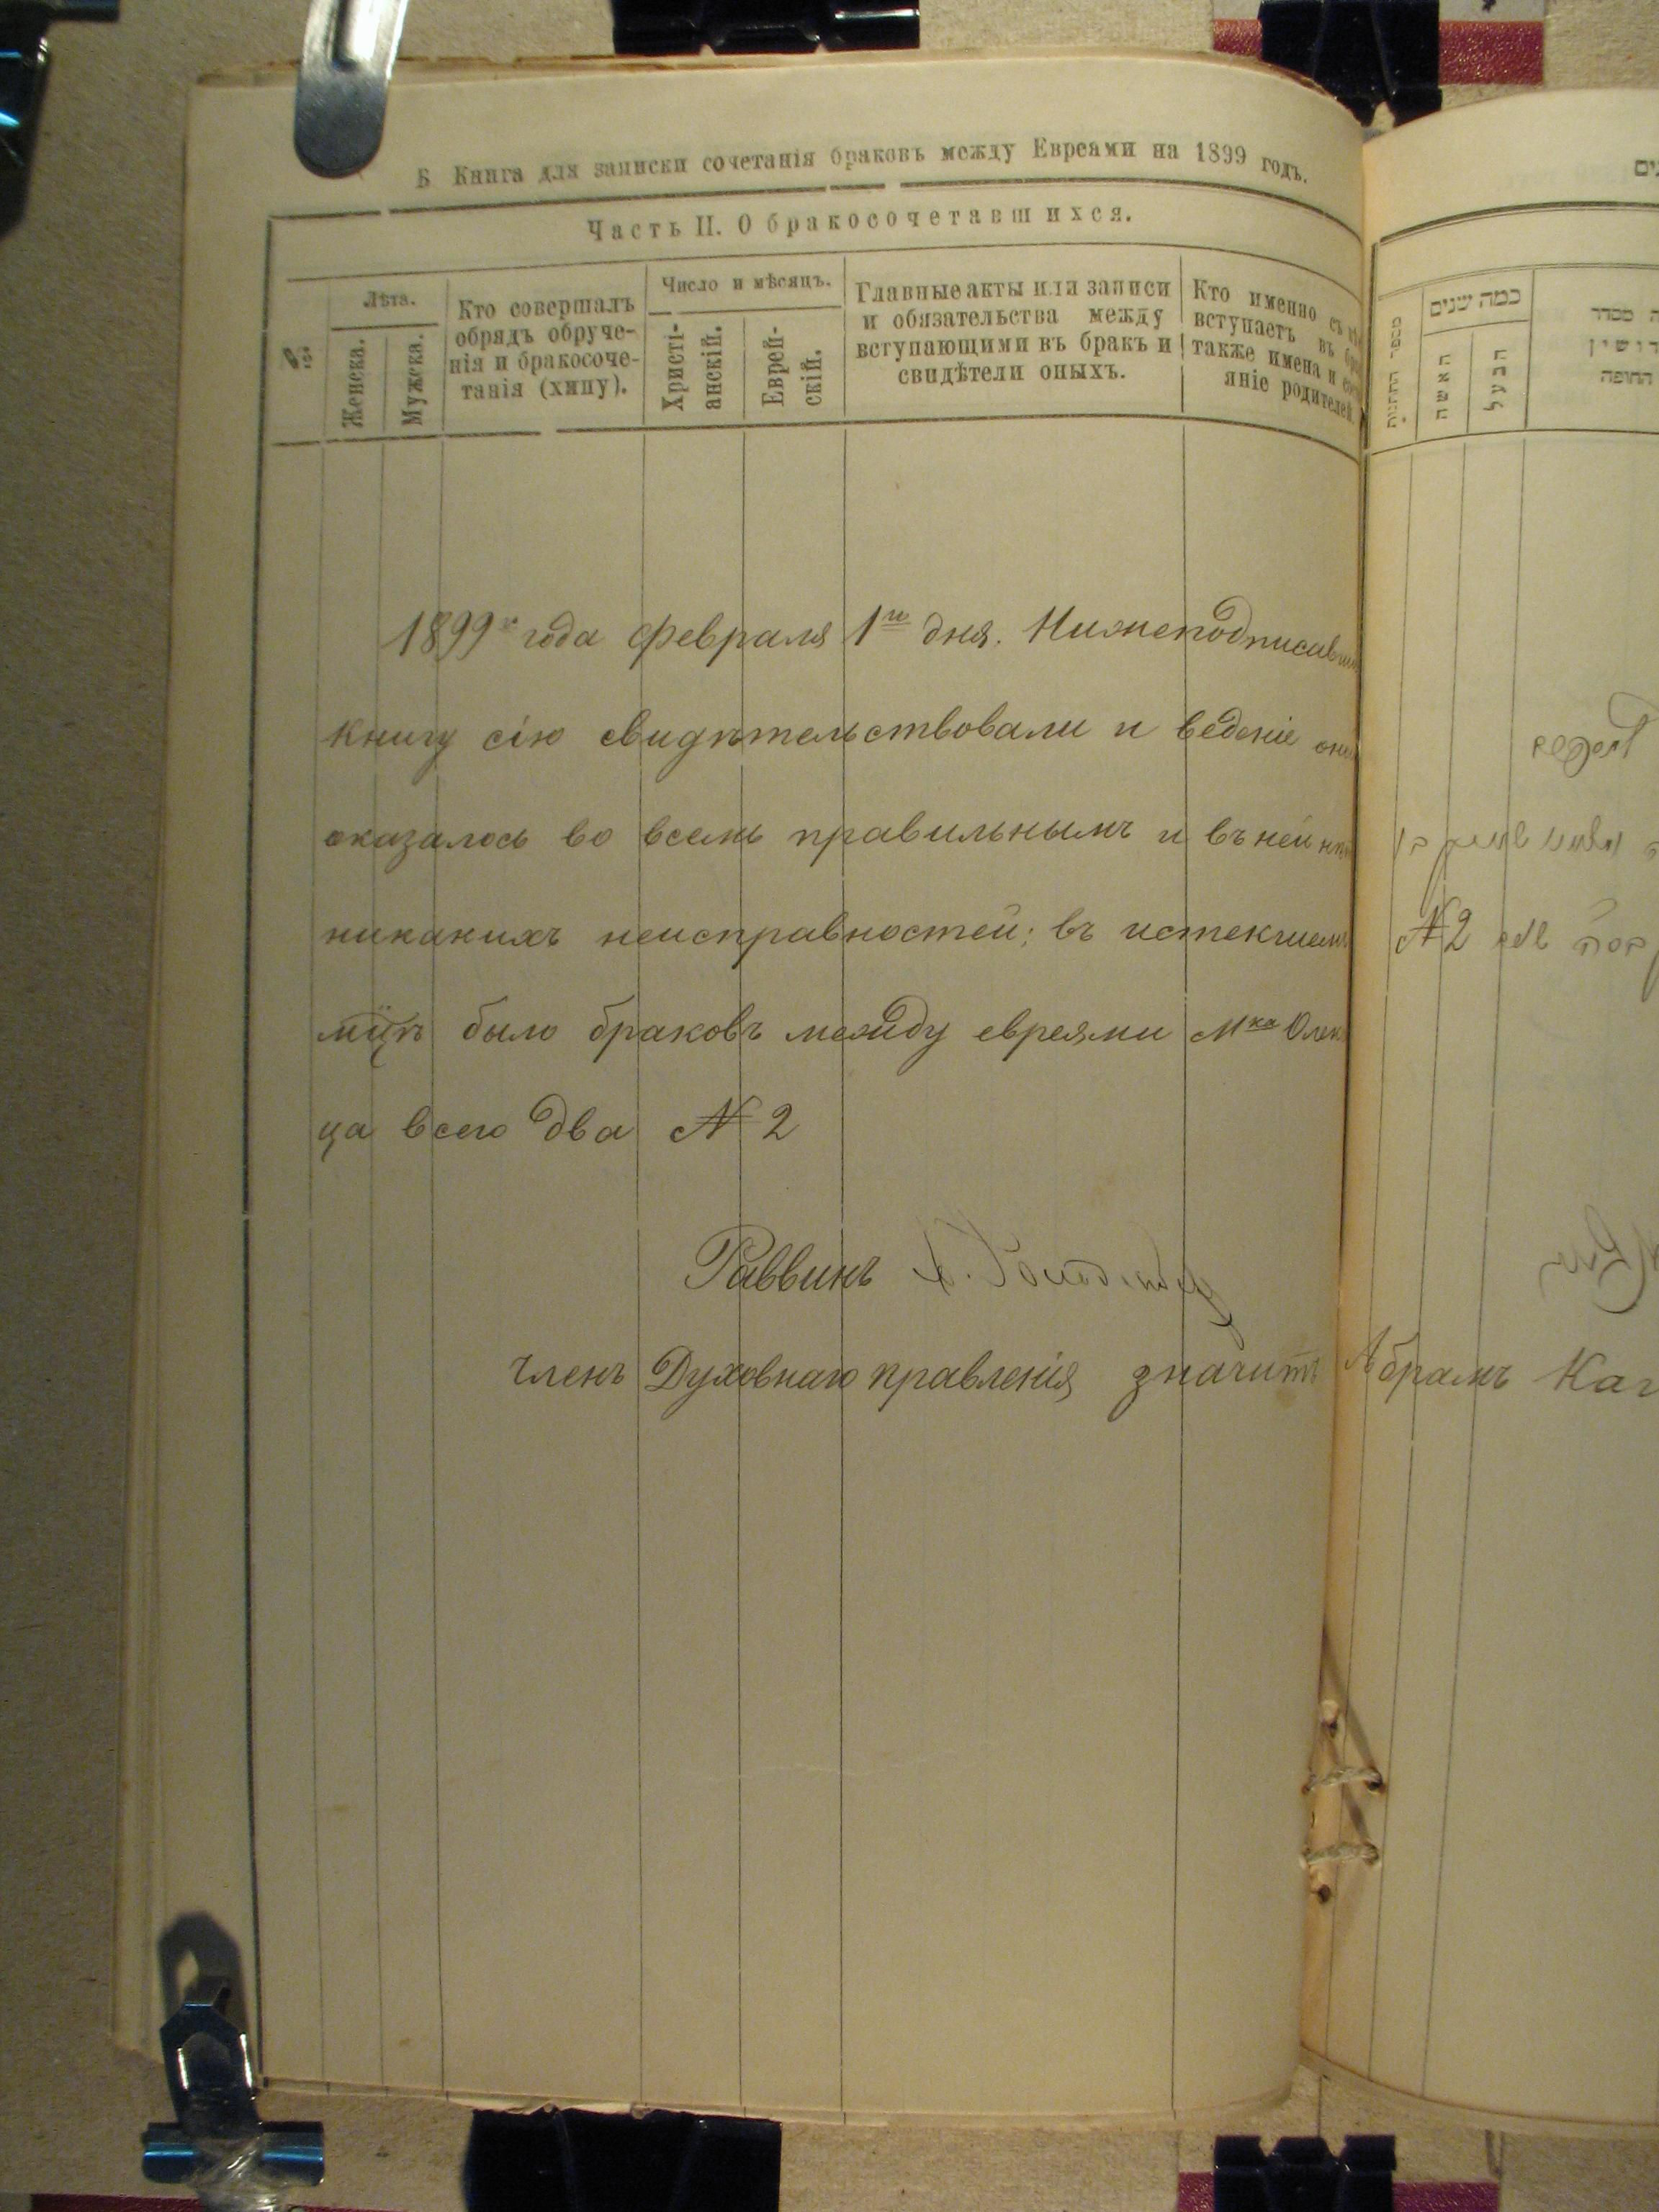 Б Книга для записки сочетанія браковъ между Евреами на 1899 годъ.
Часть II. О бракосочетавшихся.
№
Лѣта.
Женска.
Мужска.
Кто совершалъ
обрядъ обруче-
нія и бракосоче-
танія (хипу).
Число и мѣсяцъ.
Христі-
анскій.
Еврей-
скій.
Главные акты или записи
и обязательства между
вступающими въ бракъ и
свидѣтели оныхъ.
Кто именно съ
вступаетъ въ
также имена и
яніе родителей.
1899 года февраля 1го дня. Нижеподписавши
книгу сію свидѣтельствовали и веденіе
оказалось во всемъ правильнымъ и въ ней
никакихъ неисправностей; въ истекшемъ
было браковъ между евреями мка Олек
ца всего два № 2
Раввинъ
Членъ Духовнаго правленія значитъ Абрамъ Каг
מספר החתונות
כמה שנים
האשה
הבעל
מסדר
№ 2